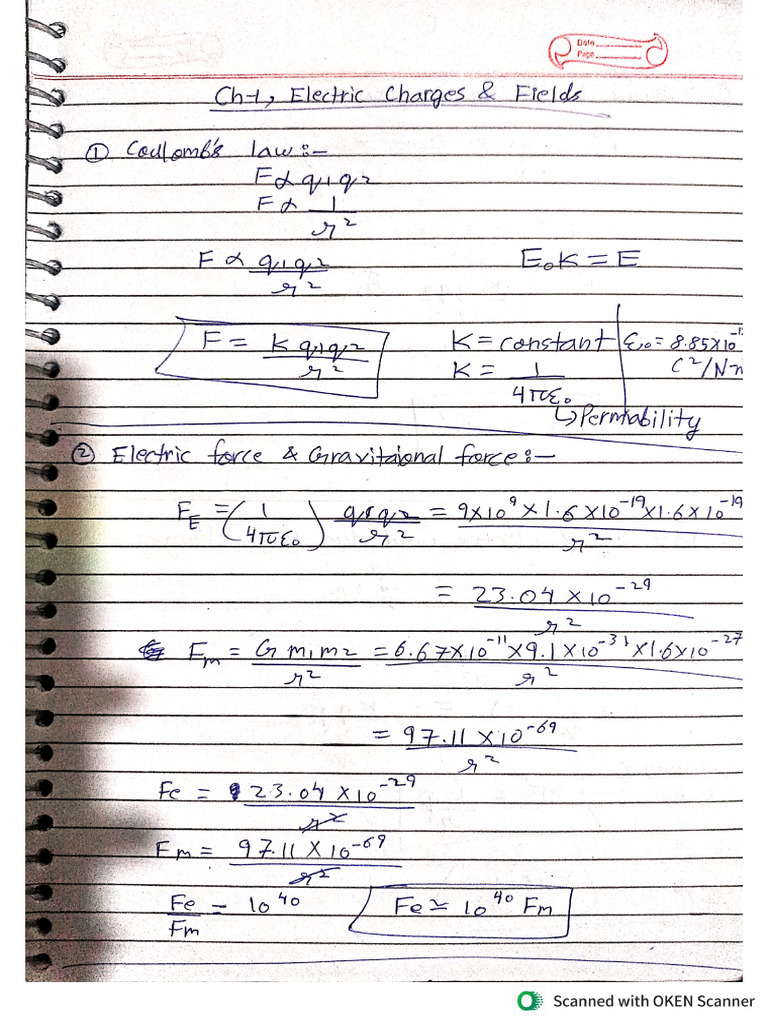 Date
Page
Ch-1, Electric Charges & Fields
① Coulomb's law:-
F α q1q2
F α 1/r²
F α q1q2/r²
E₀K = E
F = K q1q2/r²
K = constant
K = 1/4πε₀
ε₀ = 8.85x10⁻¹
C²/Nm
↳ Permiability
② Electric force & Gravitaional force:-
F_E = (1/4πε₀) q1q2/r² = 9x10⁹ x 1.6 x10⁻¹⁹x1.6x10⁻¹⁹/r²
= 23.04 x 10⁻²⁹/r²
F_m = G m1m2/r² = 6.67x10⁻¹¹x9.1x10⁻³¹x1.6x10⁻²⁷/r²
= 97.11 x10⁻⁶⁹/r²
Fe = 23.04 x 10⁻²⁹/r²
Fm = 97.11 x 10⁻⁶⁹/r²
Fe/Fm = 10⁴⁰
Fe ≃ 10⁴⁰ Fm
Scanned with OKEN Scanner